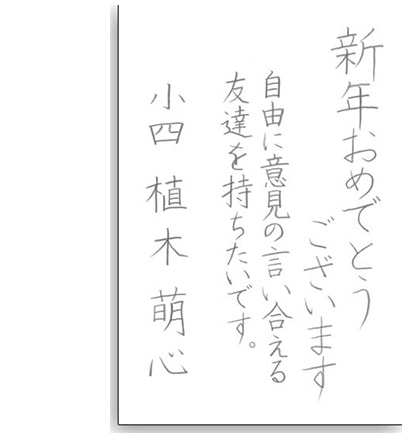 新年おめでとう
ございます
自由に意見の言い合える
友達を持ちたいです。
小四 植木萌心